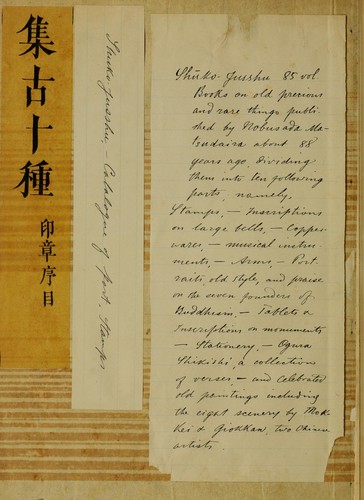 集古十種
印章序目
Shuko-Jusshu. – Catalogue of Part, Stamps.
Shūko-Jusshu 85 vol.
Books on old precious
and rare things publi-
shed by Nobusada Ma-
tsudaira about 88
years ago, dividing
them into ten following
parts, namely.
Stamps, – Inscriptions
on large bells, – Copper
wares, – musical instru-
ments – Arms, – Port-
raits, old style, and praise
on the seven founders of
Buddhism, – Tablets &
Inscriptions on monuments
– Stationery, – Ogura
Shikishi, a collection
of verses, – and Celebrated
old paintings including
the eight scenery by Mok-
kei & Giokkan, two Chinese
artists.